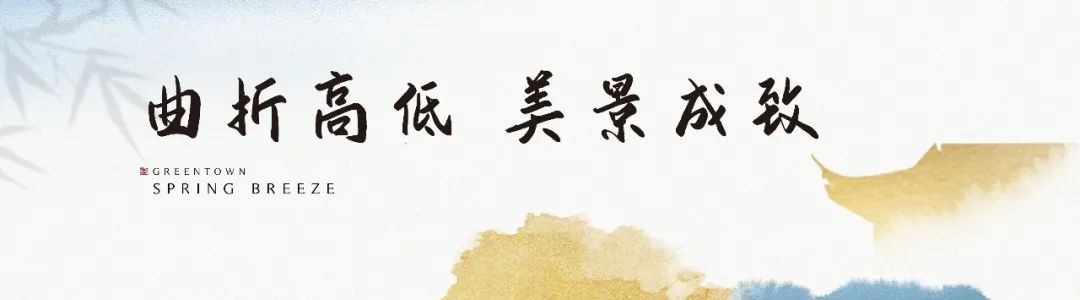 曲折高低 美景成致
GREENTOWN
SPRING BREEZE